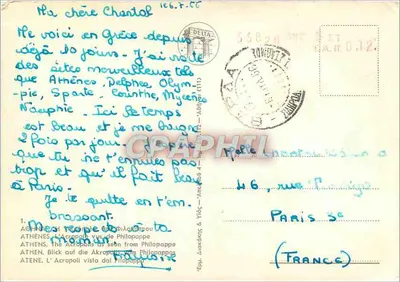 le 6.7.56
Ma chère Chantal
Me voici en Grèce depuis
déjà 10 jours. J'ai visité
des sites merveilleux tels
que Athènes, Delphes, Olym-
pie, Sparte, Corinthe, Mycènes
Nauplie. Ici le temps
est beau et je me baigne
2 fois par jour. J'espère
que tu ne t'ennuies pas
trop et qu'il fait beau
à Paris.
Je te quitte en t'em-
brassant.
Mes respects à ta
maman.
Melle Chantal
46, rue
PARIS 3e
(FRANCE)
ATHENES. L'Acropole vue de Philopappe
ATHENS. The Acropolis as seen from Philopappe
ATHEN. Blick auf die Akropolis von Philopappe
ATENE. L'Acropoli vista dal Filopappo
DELTA